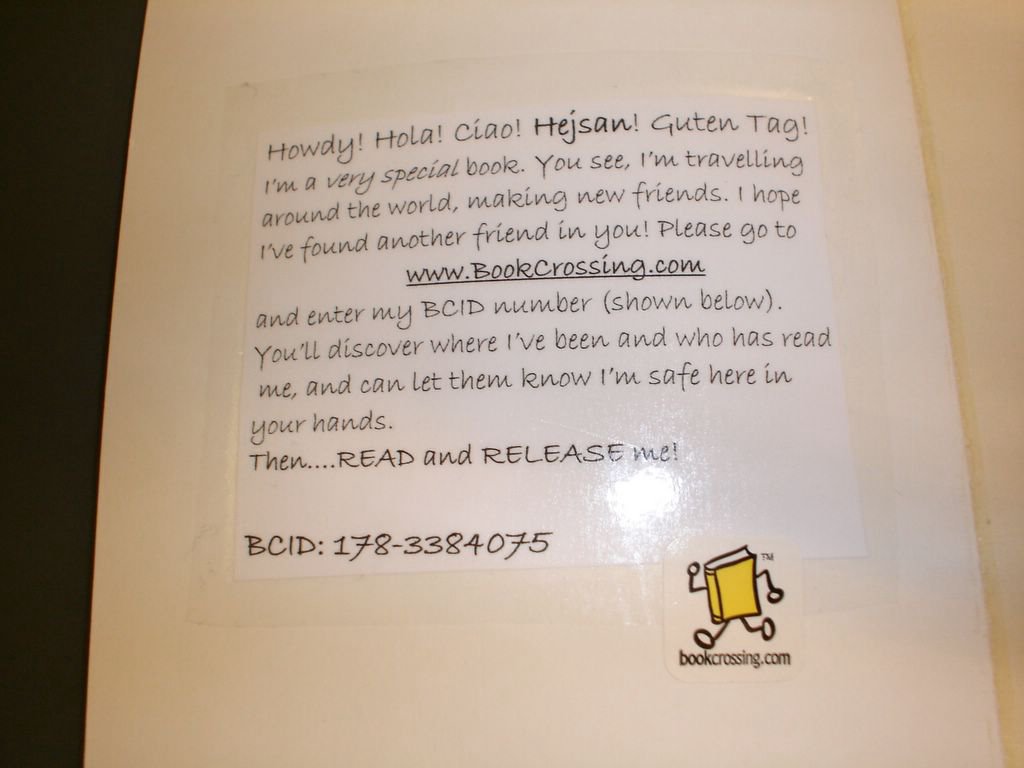 Howdy! Hola! Ciao! Hejsan! Guten Tag!
I'm a very special book. You see, I'm travelling
around the world, making new friends. I hope
I've found another friend in you! Please go to
www.BookCrossing.com
and enter my BCID number (shown below).
You'll discover where I've been and who has read
me, and can let them know I'm safe here in
your hands.
Then....READ and RELEASE me!
BCID: 178-3384075
TM
bookcrossing.com